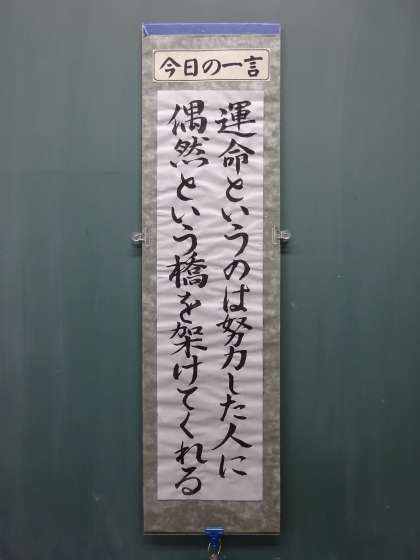 今日の一言
運命というのは努力した人に
偶然という橋を架けてくれる